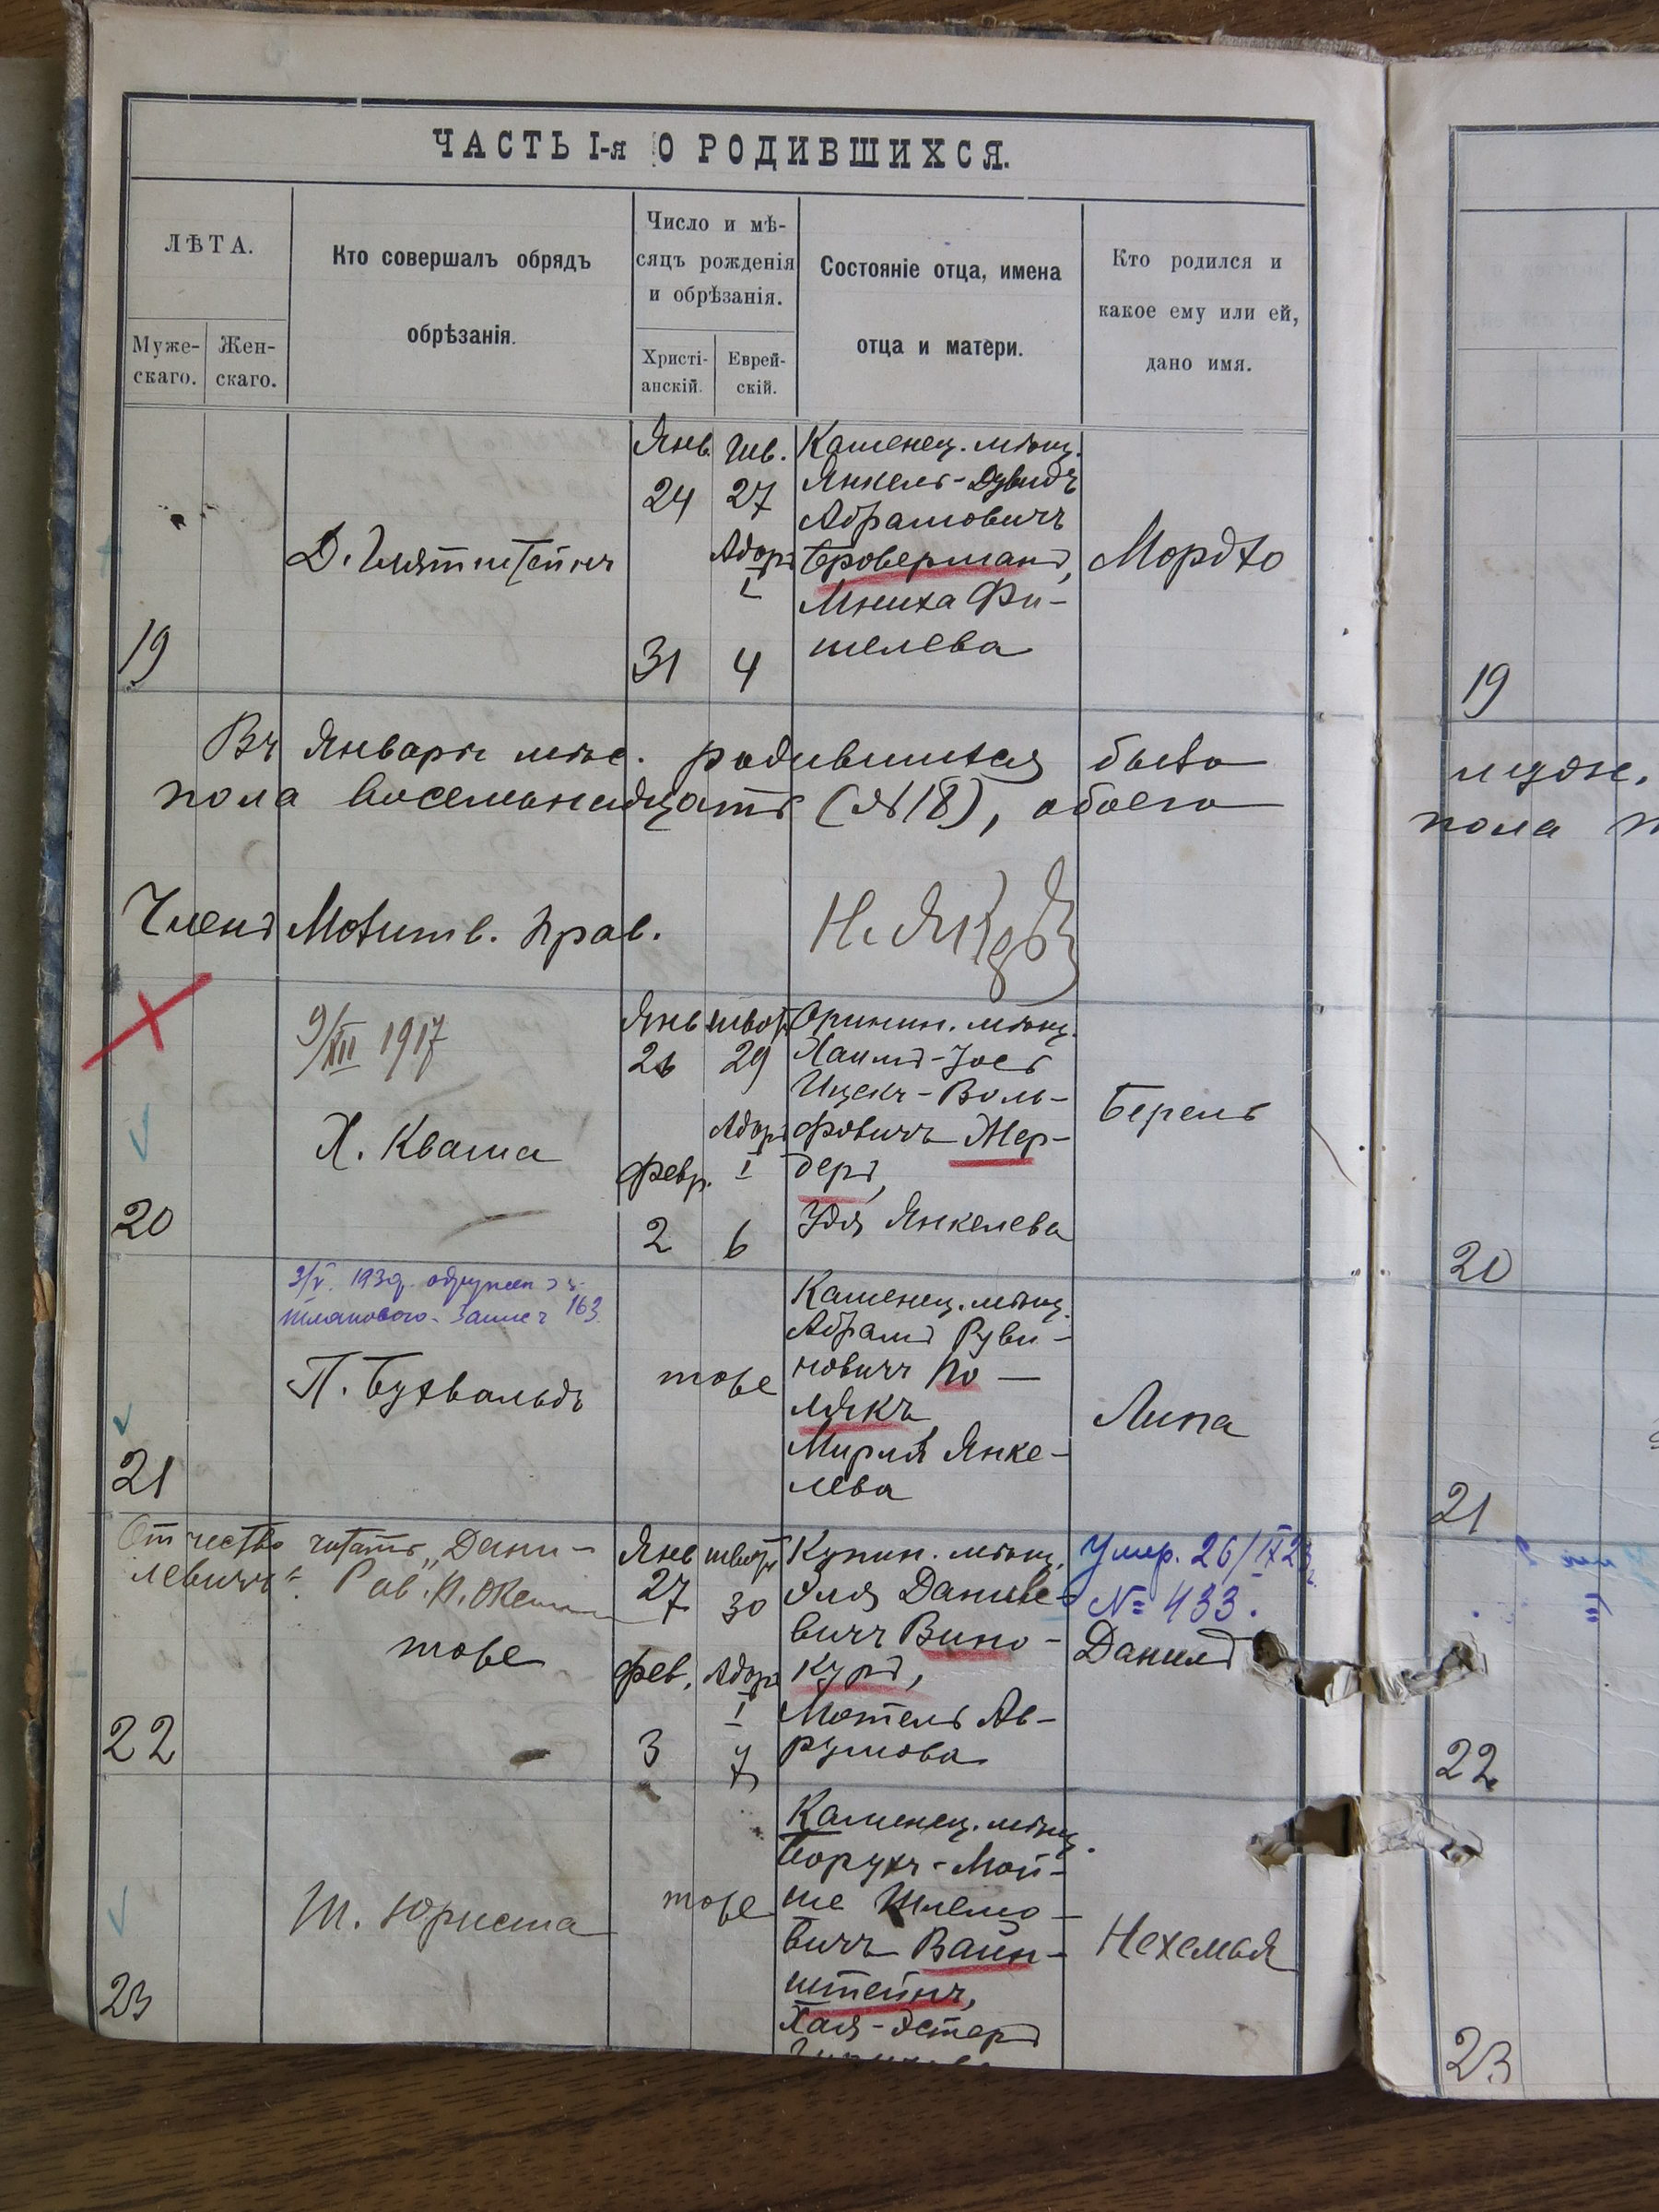 ЧАСТЬ I-я О РОДИВШИХСЯ.
ЛѢТА.
Муже-
скаго.
Жен-
скаго.
Кто совершалъ обрядъ
обрѣзанія.
Число и мѣ-
сяцъ рожденія
и обрѣзанія.
Христі-
анскій.
Еврей-
скій.
Состояніе отца, имена
отца и матери.
Кто родился и
какое ему или ей,
дано имя.
19
Янв.
24
31
Шв.
27
Адаръ
I
4
Каменец. мѣщ.
Янкель-Дувидъ
Абрамовичъ
Броверманъ,
Мниха Фи-
шелева
Мордко
Въ Январѣ мѣс. родившихся было
пола восемьнадцать (№18), обоего
Членъ Молитв. Прав.
20
9/XII 1917
Х. Кваша
Янв
26
февр.
2
шват
29
Адаръ
I
6
Оринин. мѣщ.
Хаимъ-Зось
Ицекъ-Воль-
фовичъ Мер-
деръ,
Удя Янкелева
Берель
21
163
П. Бухвальдъ
тоже
Каменец. мѣщ.
Абрамъ Руви-
новичъ По-
лякъ
Мирля Янке-
лева
Липа
Отчество читать „Дани-
левичъ“. Рав.
22
тоже
Янв
27
фев.
3
шватъ
30
Адаръ
I
7
Купин. мѣщ.
Эля Даниле-
вичъ Вино-
куръ,
Мотель Ав-
румова
Умер. 26/IX 23
№ 433.
Данилъ
23
Ш. Юриста
тоже
Каменец. мѣщ.
Борухъ-Мой-
ше Шлемо-
вичъ Вайн-
штейнъ,
Хая-Эстеръ
Нехемья
19
муж.
пола
20
21
22
23